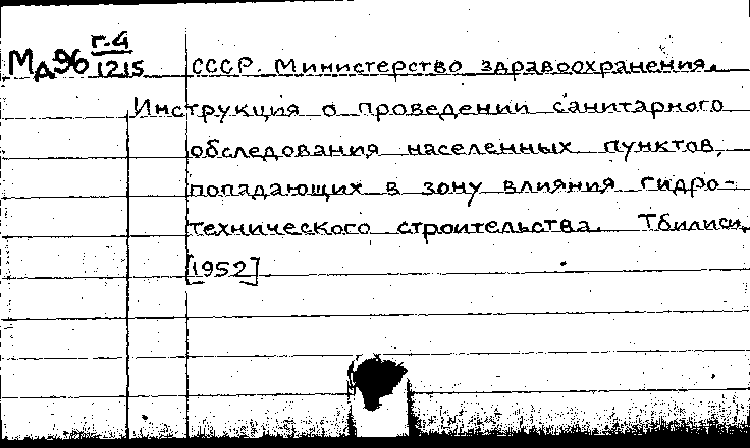 Мд96 г-4
1215
СССР. Министерство здравоохранения.
Инструкция о проведении санитарного
обследования населенных пунктов,
попадающих в зону влияния гидро-
технического строительства. Тбилиси,
[1952]